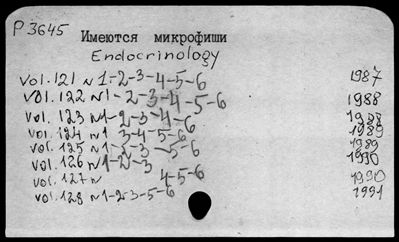 P 3645
Имеются микрофиши
Endocrinology
Vol. 121 N 1-2-3-4-5-6 1987
Vol. 122 N 1-2-3-4-5-6 1988
Vol. 123 N 1-2-3-4-6 1988
Vol. 124 N 1 3-4-5-6 1989
Vol. 125 N 1-2-3-5-6 1989
Vol. 126 N 1-2-3 1990
Vol. 127 N 4-5-6 1990
Vol. 128 N 1-2-3-5-6 1991